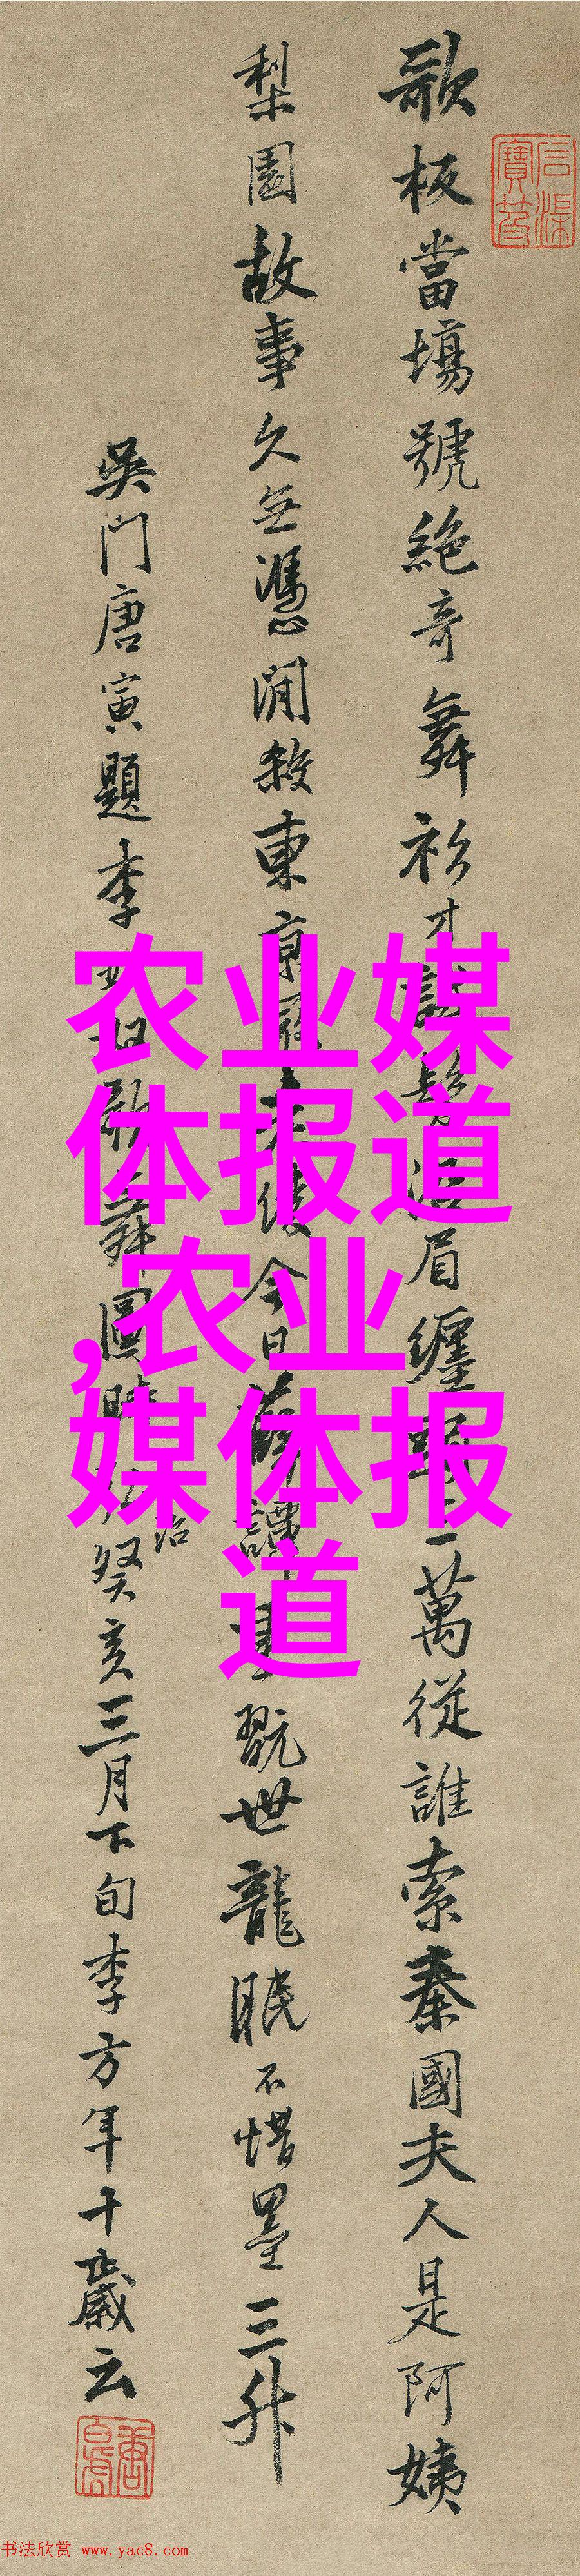 歌板當場號絕奇舞衫才眉纏萬從誰索秦國夫人是阿姨
梨園故事久無憑閒殺東京今日翫世龍眠不惜墨三升
吳門唐寅題李歌舞圖時弘治癸亥三月下旬李方年十歲云
农业媒
体报道
,农业
媒体报
道
书法欣赏 www.yac8.com